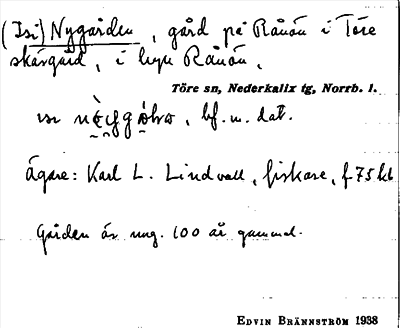 (Isi) Nygården, gård på Rånön i Töre
skärgård, i byn Rånön.
Töre sn, Nederkalix tg, Norrb. l.
bf. m. dat.
Ägare: Karl L. Lindvall, fiskare, f 75 kb
Gården är ung. 100 år gammal.
EDVIN BRÄNNSTRÖM 1938